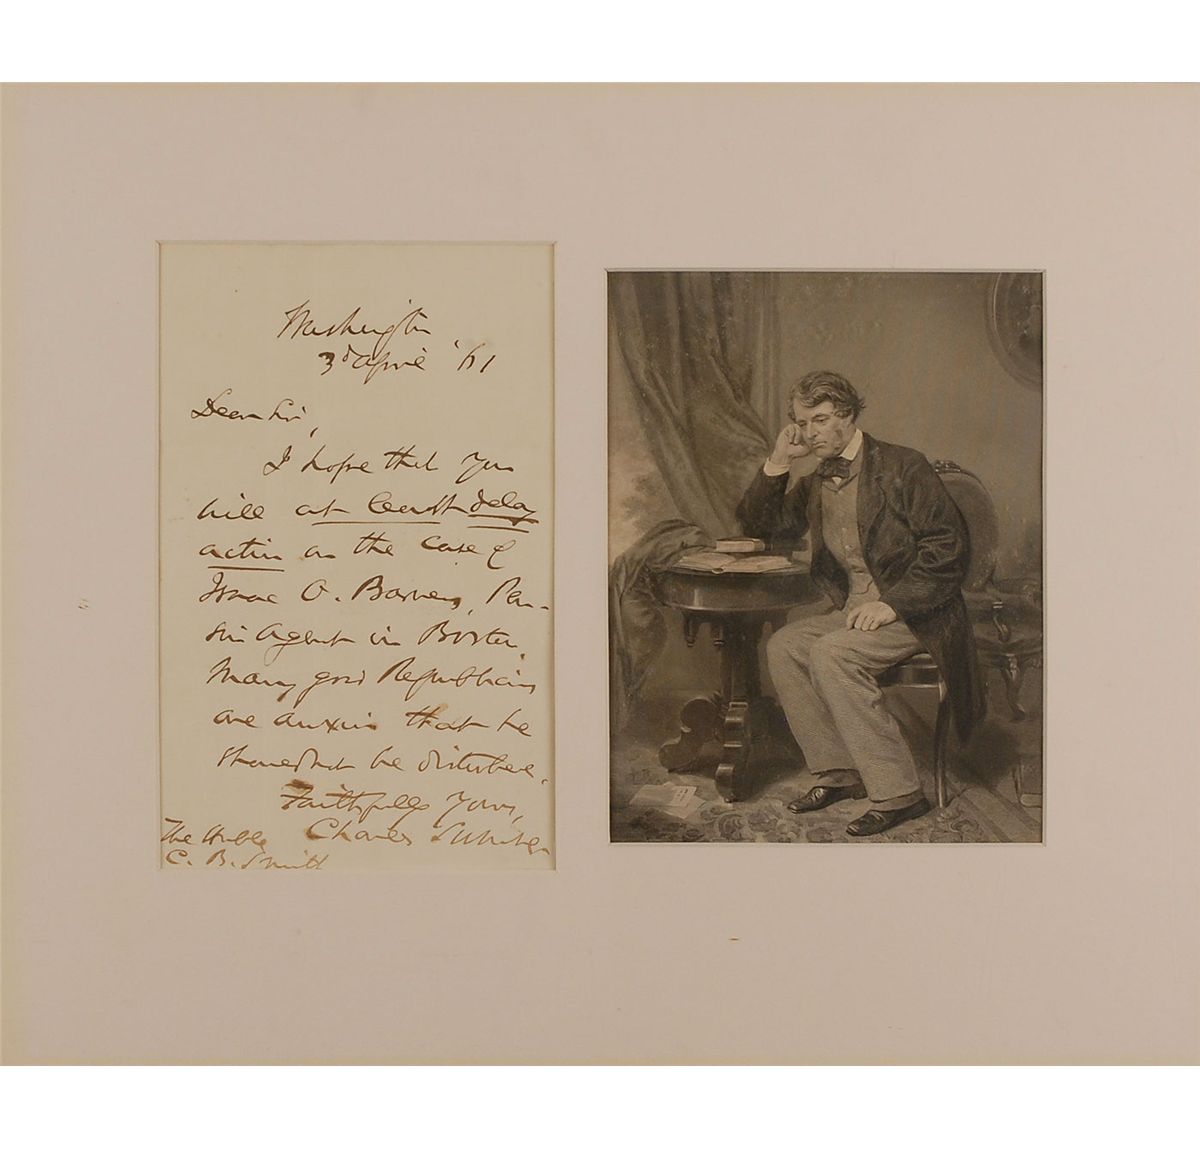 Washington
3d April '61
Dear Sir,
I hope that you
will at least delay
action on the case of
Isaac O. Barnes, Pen-
sion Agent in Boston.
Many good Republicans
are anxious that he
should not be disturbed.
Faithfully Yours,
Charles Sumner
The Honble
C. B. Smith